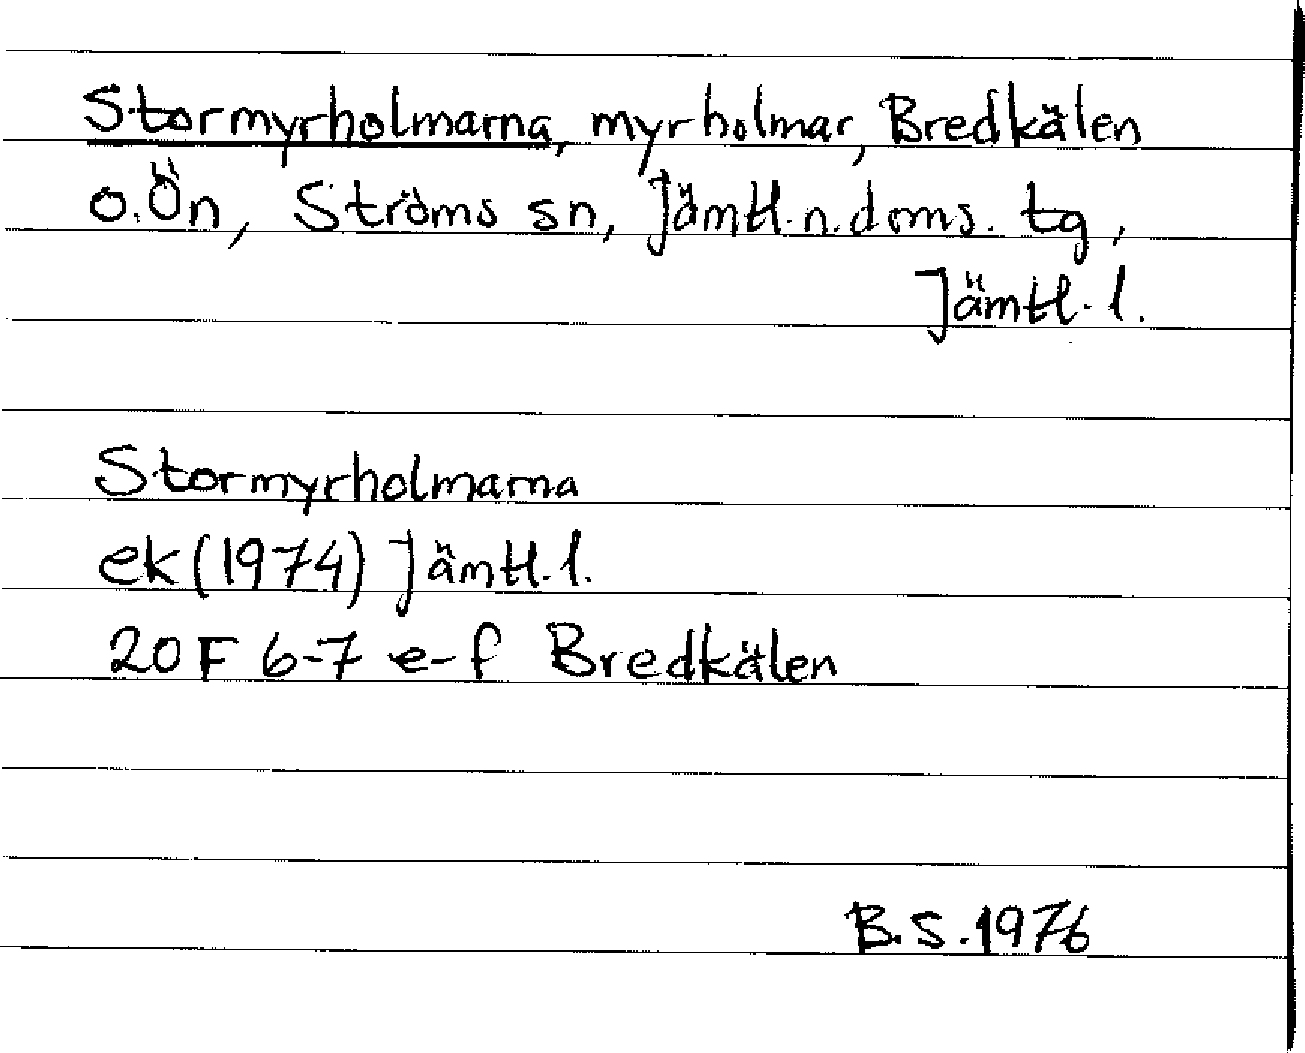 Stormyrholmarna, myrholmar, Bredkälen
o. Ön, Ströms sn, Jämtl. n. doms. tg,
Jämtl. l.
Stormyrholmarna
ek (1974) Jämtl. l.
20 F 6-7 e-f Bredkälen
B.S. 1976